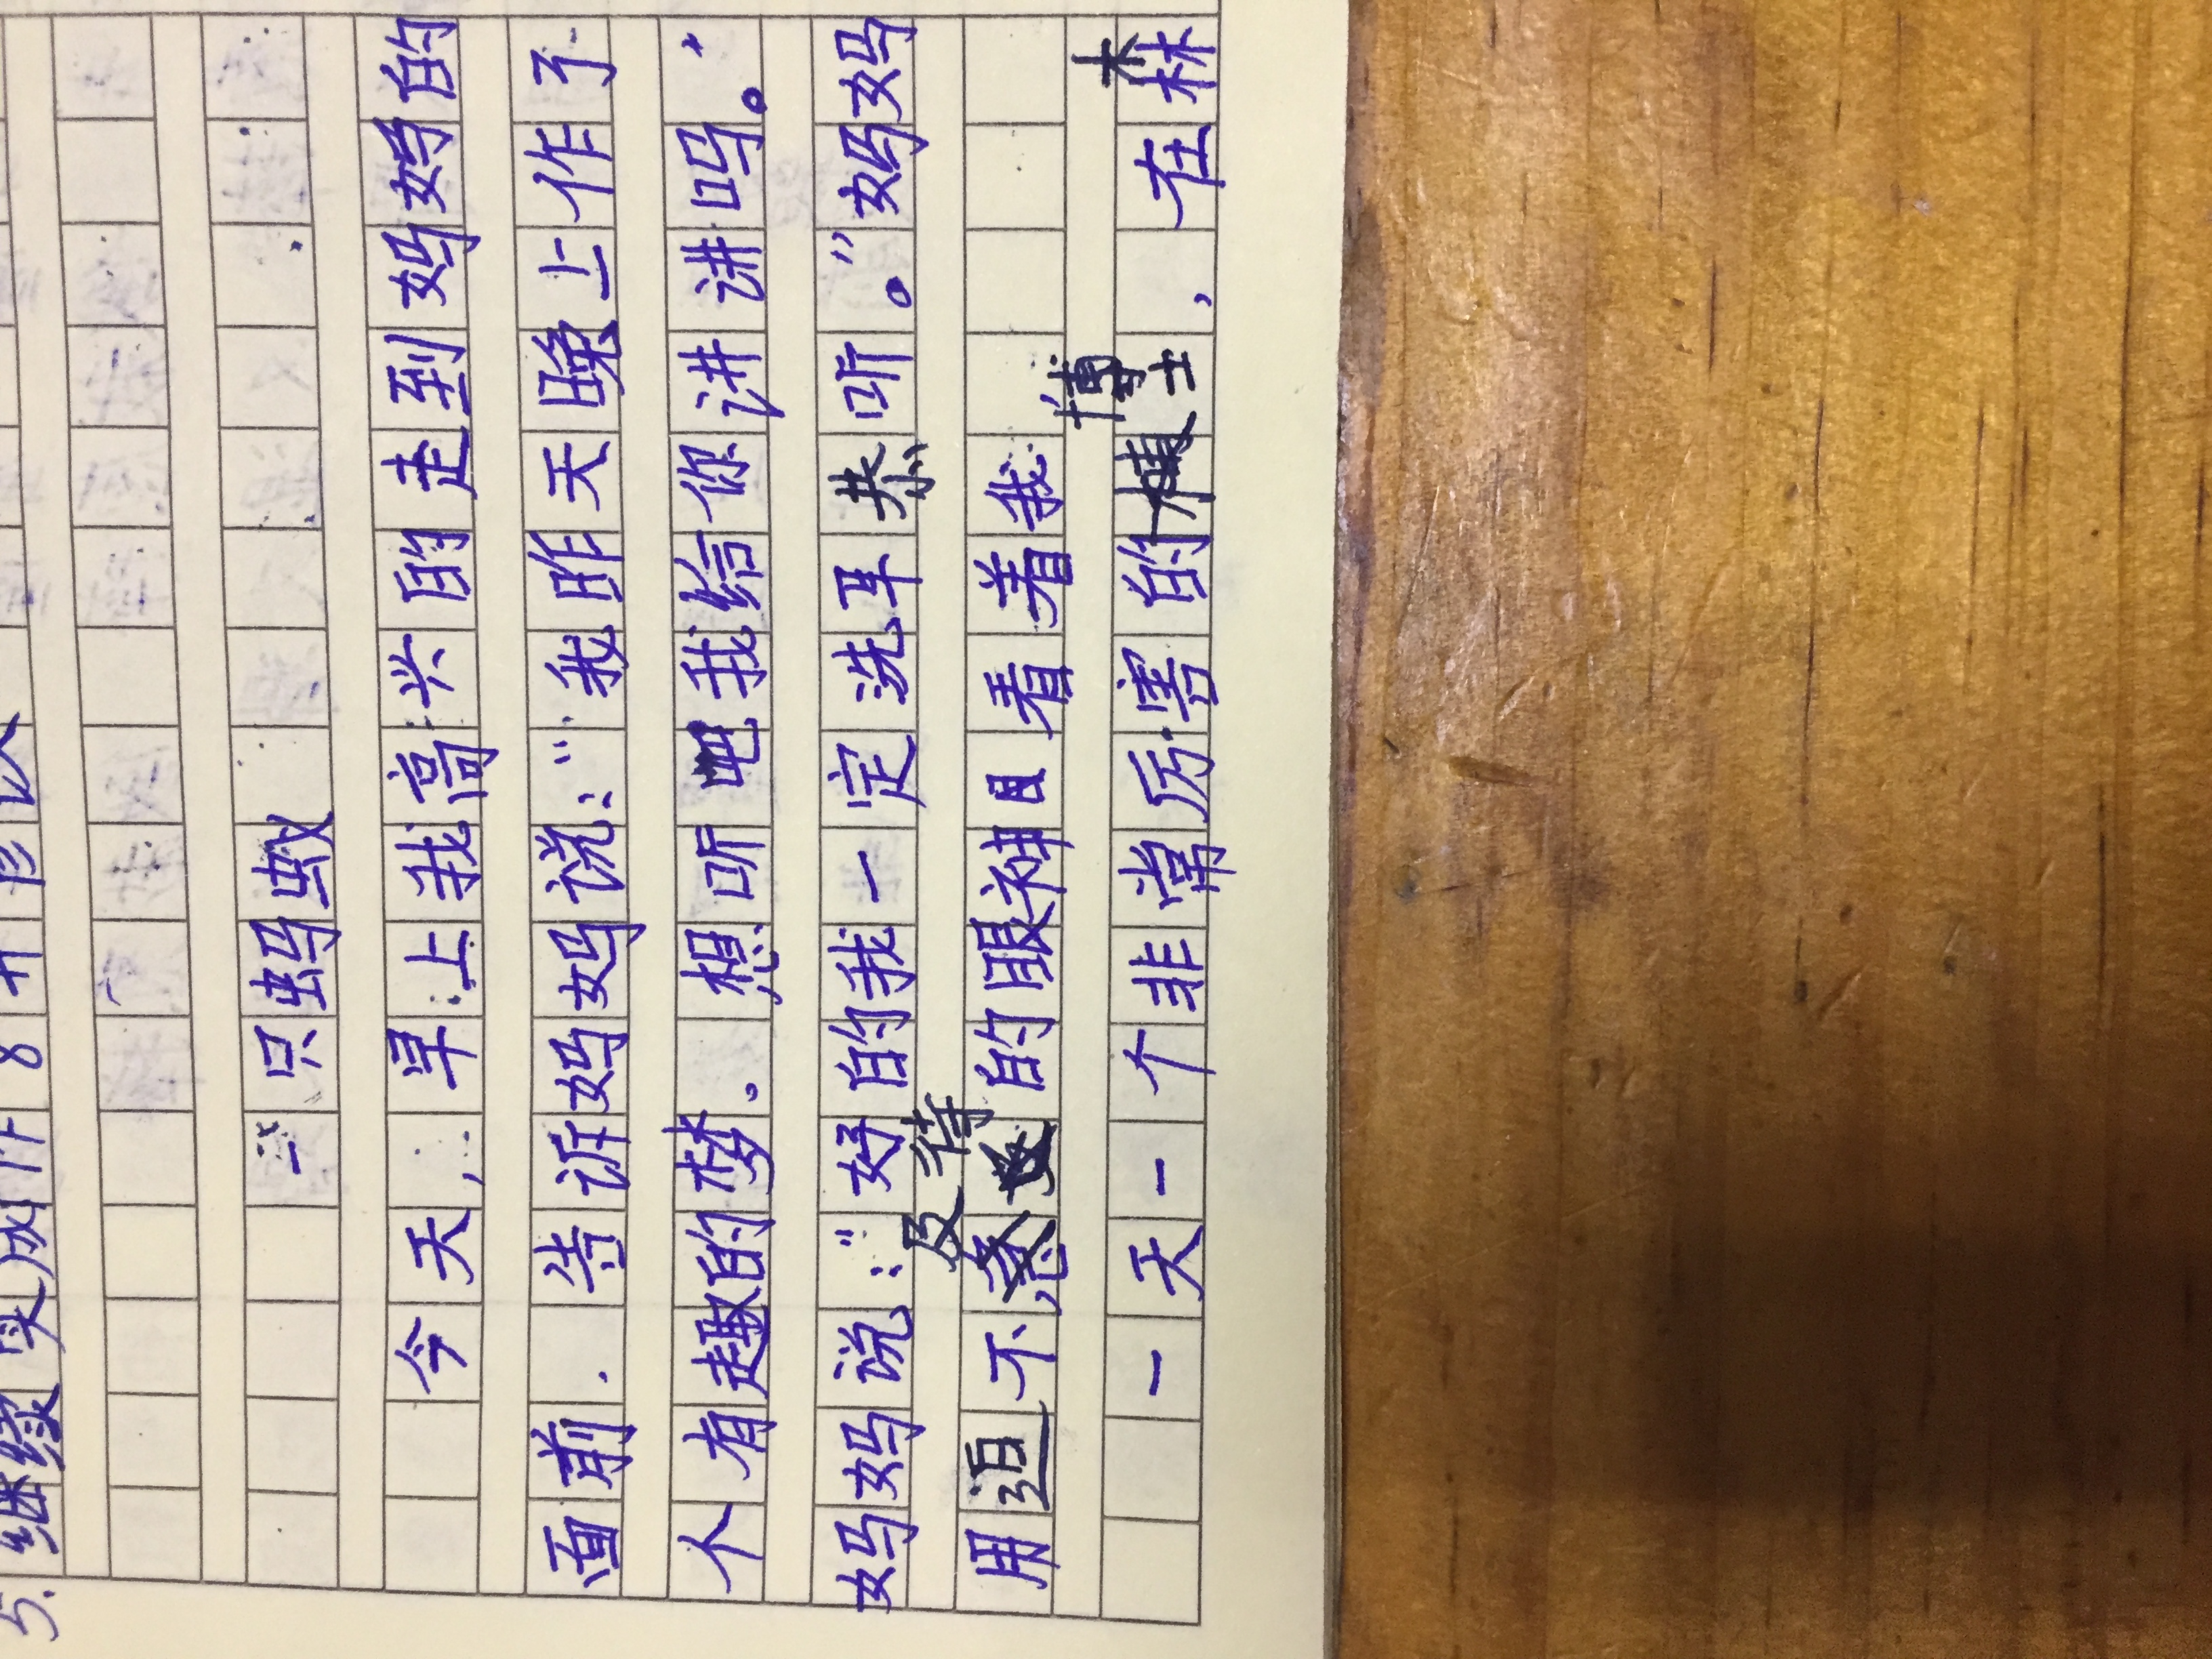 5.继续
一只蚂蚁
今天,早上我高兴的走到妈妈的
面前.告诉妈妈说:"我昨天晚上作了
个有趣的梦。想听吧我给你讲讲吗。"
妈妈说:"好的我一定洗耳恭听。"妈妈
用迫不及待的眼神目看着我
一天一个非常厉害的博士,在森林